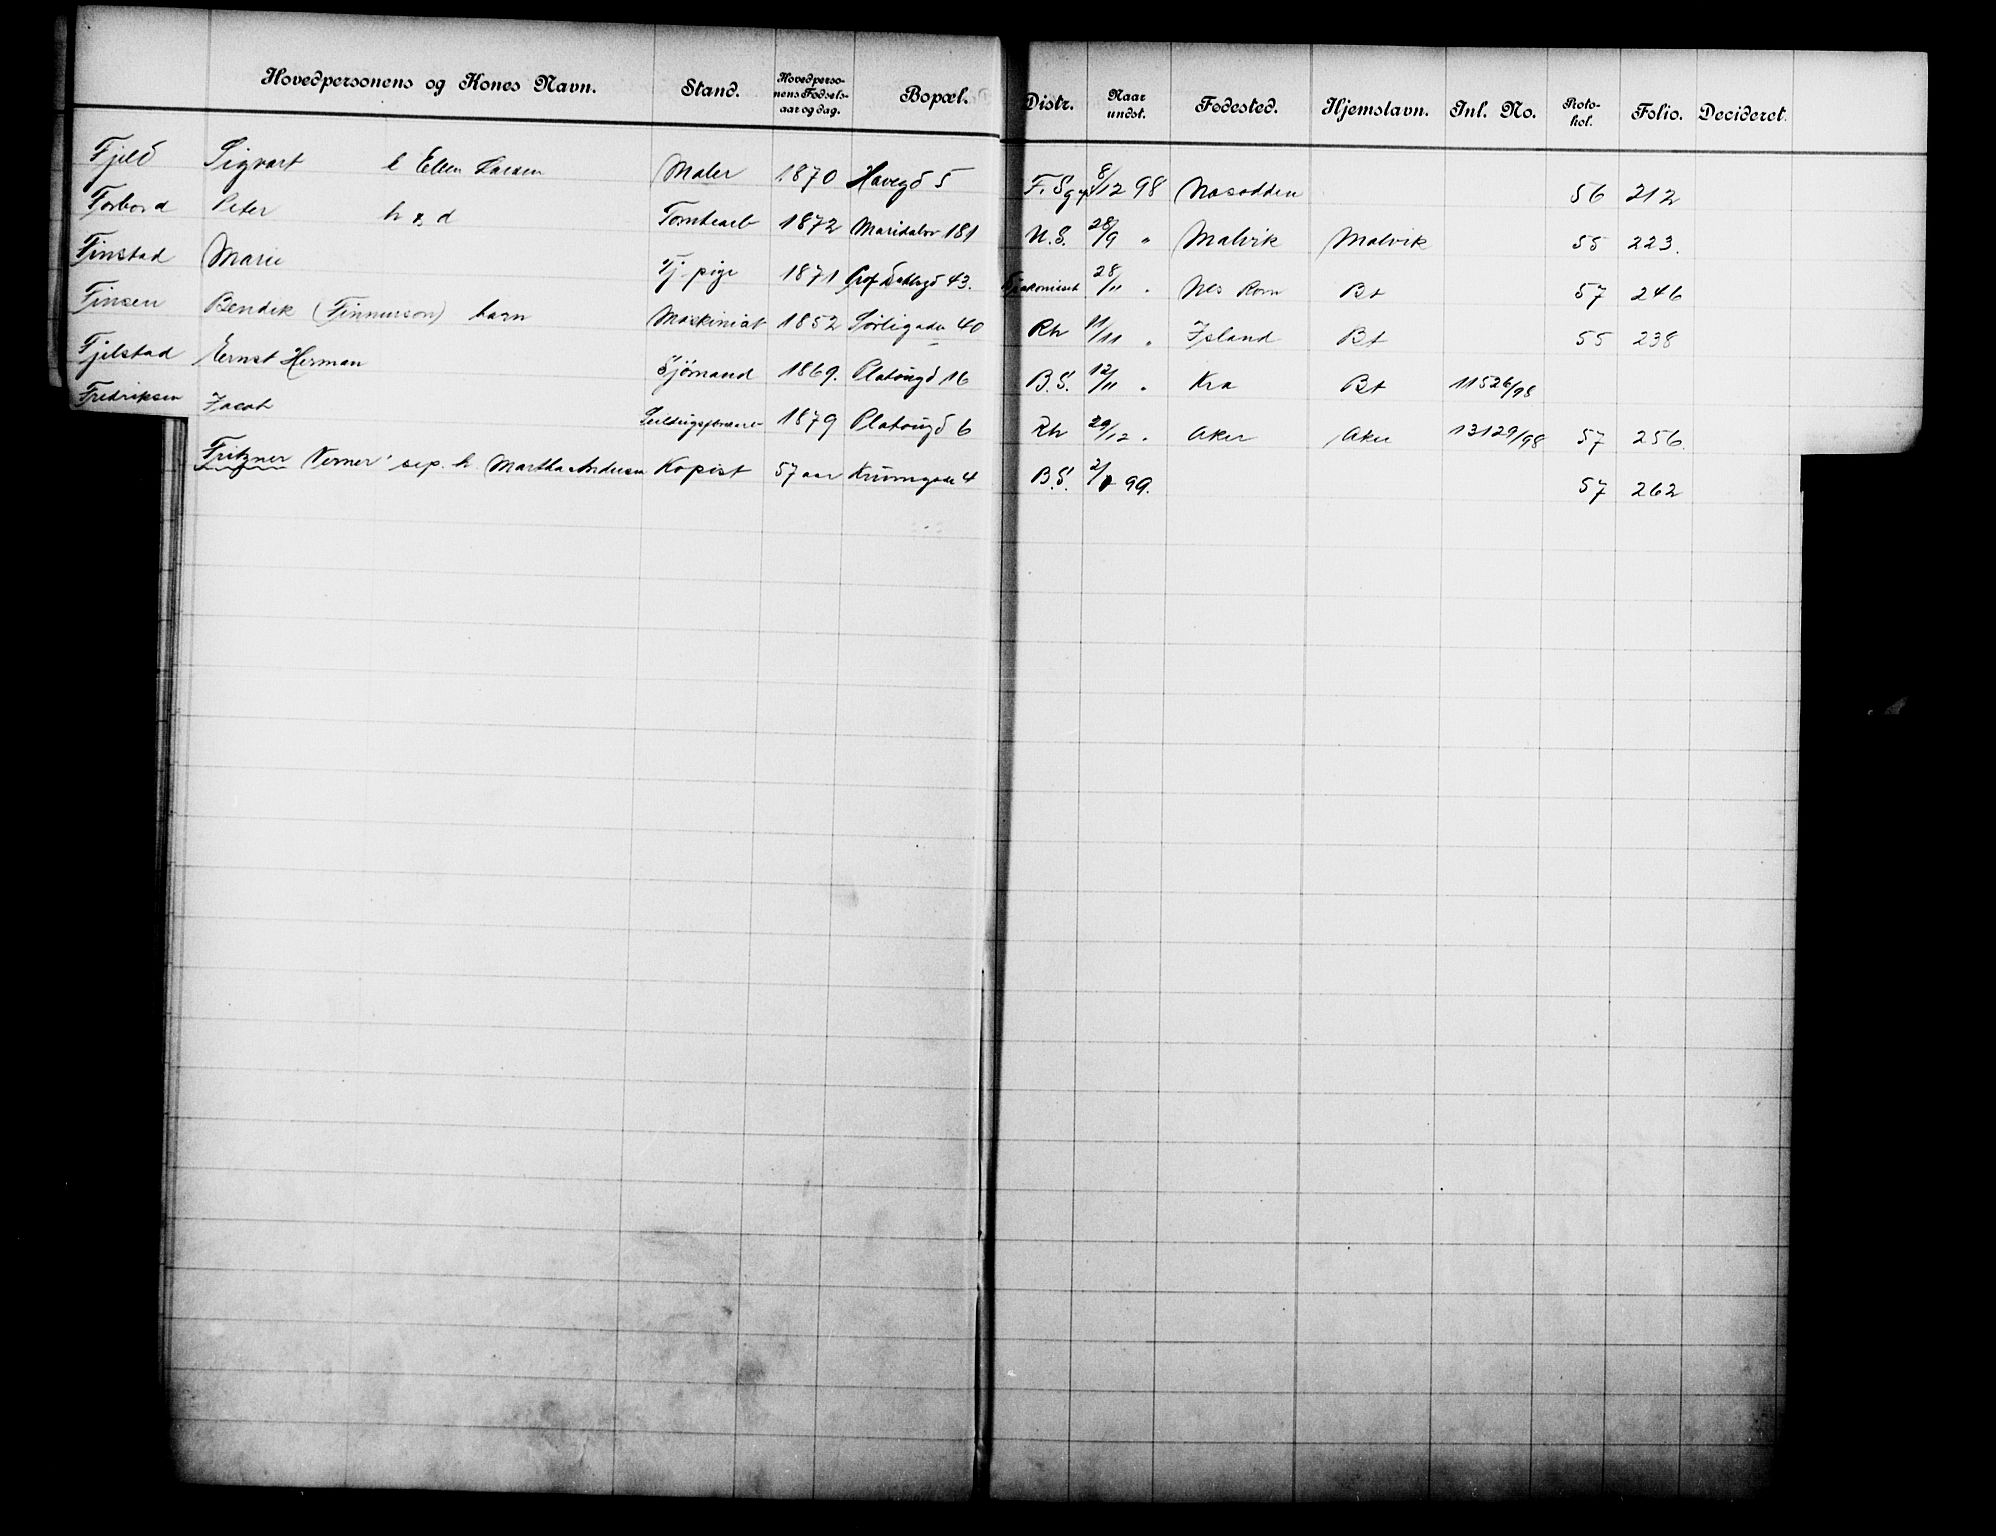 Hovedpersonens og Kones Navn. Stand. Hovedpersonens Fødselsaar og dag. Bopæl. Distr. Naar undst. Fødested. Hjemstavn. Inl. No. Protokol. Folio. Decideret.
Fjeld Sigvart h Ellen Larsen Maler 1870 Havegd 5 8/12 98 Nesodden 56 212
Forbord Peter h & d Tomtearb 1872 Maridalsv 181 N.S. 28/9 " Malvik Malvik 55 223.
Finstad Marie Tj. pige 1871 Prof Dahlsgd 43. 28/11 " Nes Rom Bt 57 246
Finsen Bendik (Finnurson) barn Maskinist 1852 Sørligade 40 Rh 11/11 " Island Bt 55 238
Fjelstad Ernst Herman Sjømand 1869. Platougd 16 B.S. 12/11 " Kra Bt 11526/98
Fredriksen Jacob 1879 Platougd 6 Rh 29/12 " Aker Aker 13129/98 57 256.
Fritzner Verner sep. h. Martha Andersen Kopist 57 aar Krumgade 4 B.S. 99. 57 262